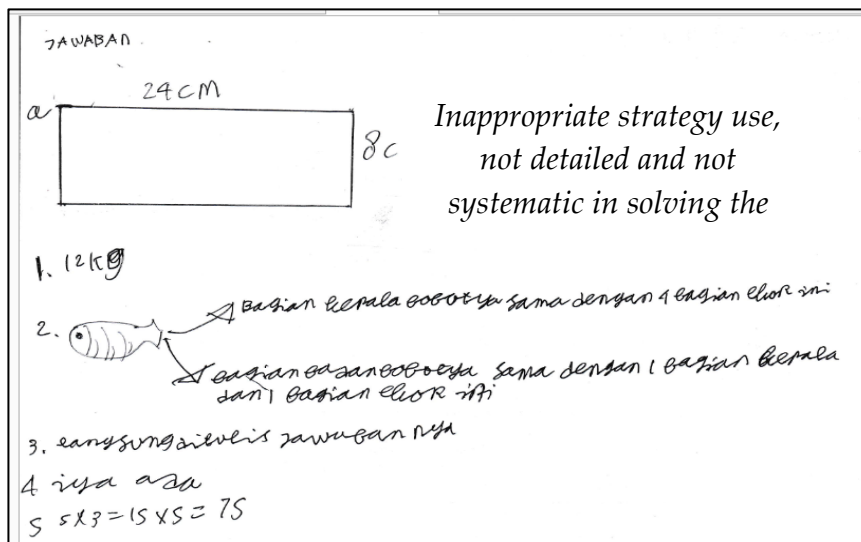 JAWABAN.
24 CM
a
8 C
Inappropriate strategy use,
not detailed and not
systematic in solving the
1. 12 kg
2.
Bagian kepala bobotya sama dengan 4 bagian ekor ini
bagian badan bobotya sama dengan 1 bagian kepala
dan 1 bagian ekor ini
3. langsung ditulis jawaban nya
4 iya ada
5 5x3=15x5=75